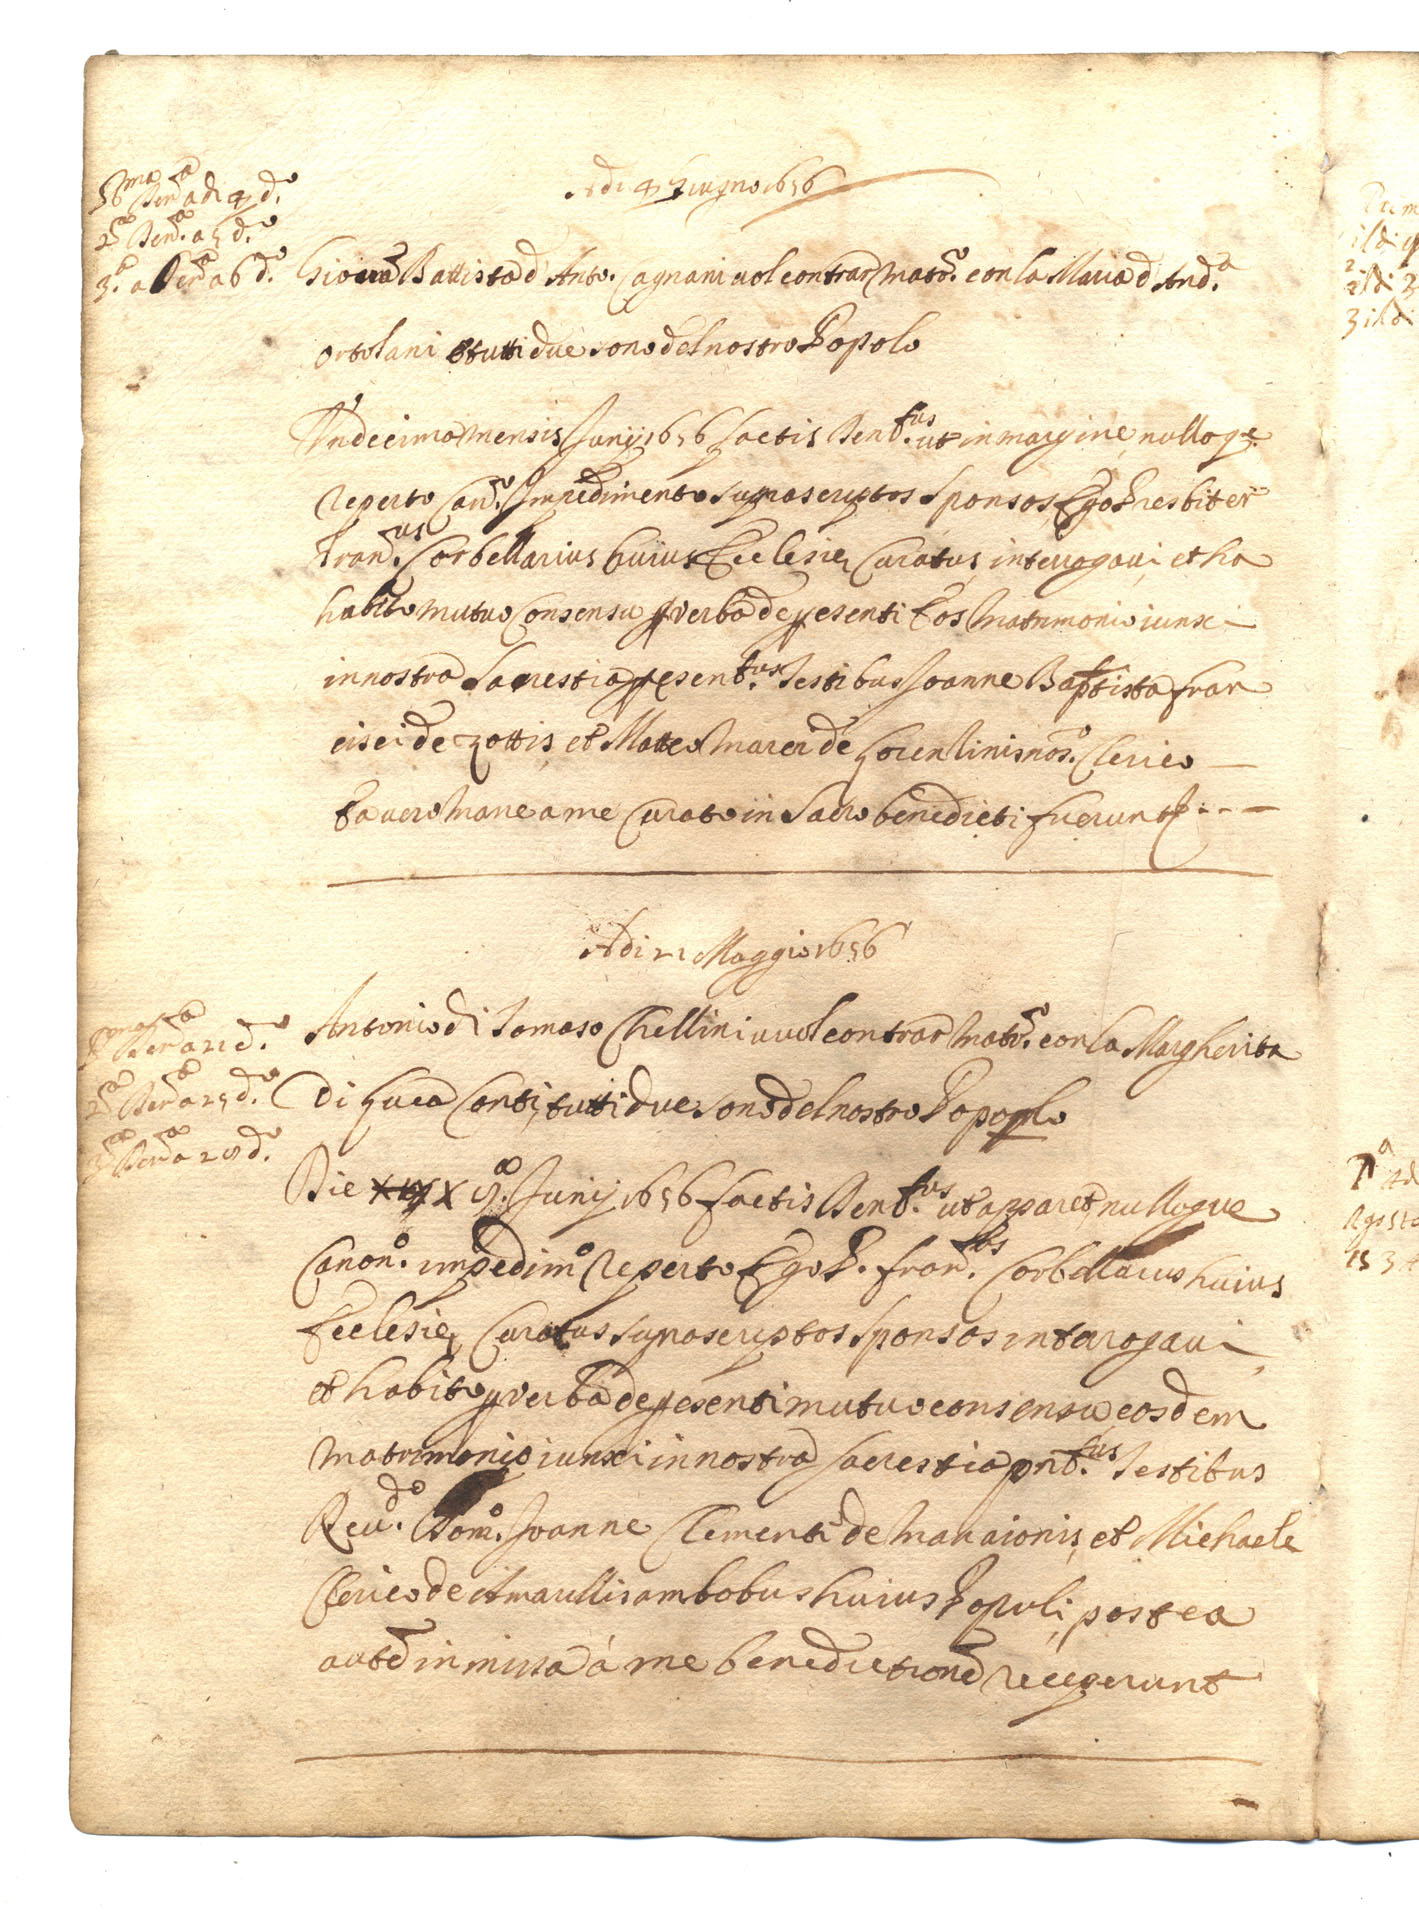 Adi 4 Giugno 1656
p.ma Den.a adi 4 d.o
2.a Den.a a 5 d.o
3.a Den.a a 6 d.o
Giovan Battista d' Anto. Cagnani vol contrar matr.o con la Maria d' And.a
ortolani tutti due sono del nostro Popolo
Undecima mensis Junij 1656 factis Dent.bus ut in margine nulloq3
reperto Can.o Impedimento suprascriptos sponsos, Ego Presbiter
Fran.us Corbellarius huius Ecclesie Curatus interrogavi et ha
habito mutuo Consensu p verba de pesenti Eos Matrimonio iunxi
in nostra Sacrestia pesent.bus Testibus Joanne Baptista fran
cisci de Zottis, et Matteo Marci de Lorentinis nos.o Clerico
Ea vero Mane a me Curato in Sacro benedicti fuerunt
Adi 21 Maggio 1656
p.ma Den.a a 21 d.o
2.a Den.a a 25 d.o
3.a Den.a a 28 d.o
Antonio di Tomaso Chellini vuol contrar Matr.o con la Margherita
di Luca Conti, tutti due sono del nostro Popolo
Die X Junij 1656 factis Dent.bus ut apparet, nulloque
Canon.o impedim.o reperto Ego P. Fran.us Corbellarius huius
Ecclesie Curatus suprascriptos sponsos interrogavi
et habito p verba de pesenti mutuo consensu, eosdem
matrimonio iunxi in nostra sacrestia pnt.bus Testibus
Reu.do Dom.o Joanne Clementi de Maraionis, et Michaele
Clerico de Amarellis ambobus huius Populi, postea
aute in missa à me benedictione receperunt